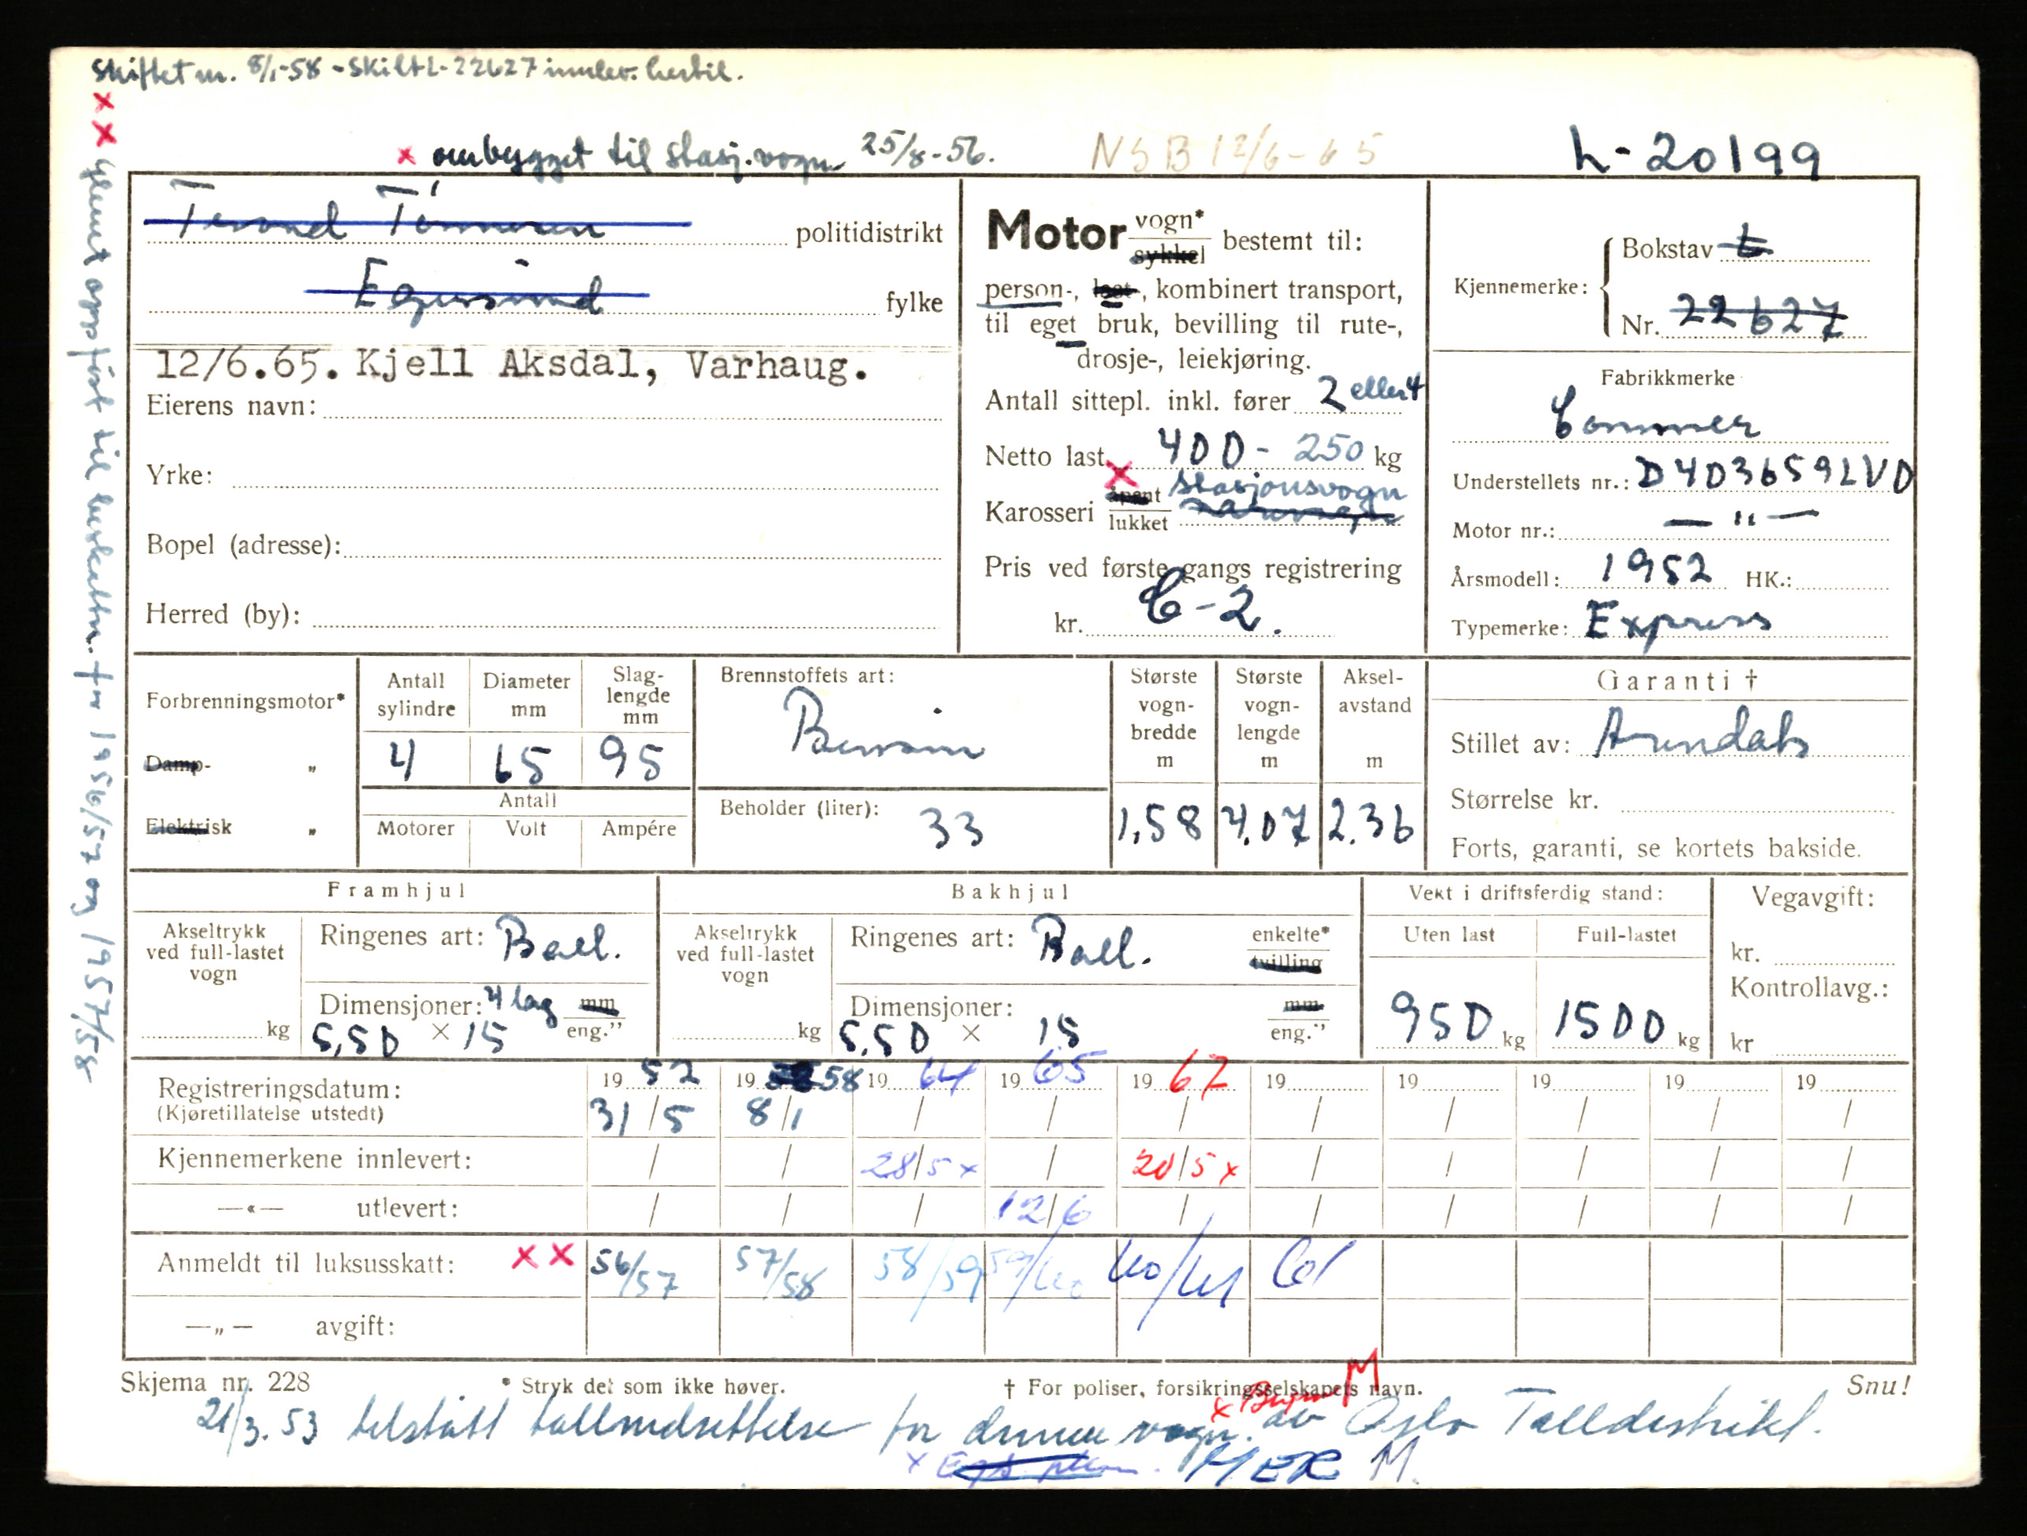 Skiftet nr. 8/1-58 - Skilt L-22627 innlev. hertil.
x ombygget til stasj.vogn 25/8-56. NSB 12/6-65 L-20199
xx Glemt oppført til beskattn. for 1956/57 og 1957/58
politidistrikt
Egersund fylke
12/6.65. Kjell Aksdal, Varhaug.
Eierens navn:
Yrke:
Bopel (adresse):
Herred (by):
Motor vogn* sykkel bestemt til:
person-, last-, kombinert transport,
til eget bruk, bevilling til rute-,
drosje-, leiekjøring.
Antall sittepl. inkl. fører 2 eller 4
Netto last 400 - 250 kg
Karosseri åpent lukket x stasjonsvogn varevogn
Pris ved første gangs registrering
kr. C-2.
Kjennemerke: Bokstav L
Nr. 22627
Fabrikkmerke
Commer
Understellets nr.: D4D3659LVD
Motor nr.: — " —
Årsmodell: 1952 HK.:
Typemerke: Express
Forbrenningsmotor*
Damp- „
Elektrisk „
Antall sylindre 4
Diameter mm 65
Slaglengde mm 95
Antall
Motorer Volt Ampére
Brennstoffets art: Bensin
Beholder (liter): 33
Største vognbredde m 1,58
Største vognlengde m 4.07
Akselavstand m 2.36
Garanti †
Stillet av: Arendals
Størrelse kr.
Forts, garanti, se kortets bakside.
Framhjul
Akseltrykk ved full-lastet vogn kg
Ringenes art: Ball.
Dimensjoner: 4 lag mm
5,50 × 15 eng."
Bakhjul
Akseltrykk ved full-lastet vogn kg
Ringenes art: Ball. enkelte* tvilling
Dimensjoner: mm
5.50 × 15 eng."
Vekt i driftsferdig stand:
Uten last Full-lastet
950 kg 1500 kg
Vegavgift:
kr.
Kontrollavg.:
kr
Registreringsdatum: 19 52 19 58 19 64 19 65 19 67 19 19 19 19 19
(Kjøretillatelse utstedt) 31/5 8/1 / / / / / / / /
Kjennemerkene innlevert: / / 28/5 x / 20/5 x / / / / /
—«— utlevert: / / / 12/6 / / / / / /
Anmeldt til luksusskatt: xx 56/57 57/58 58/59 59/60 60/61 61
—„— avgift:
Skjema nr. 228 * Stryk det som ikke høver. † For poliser, forsikringsselskapets navn. Snu!
x M
21/3.53 tilstått tollnedsettelse for denne vogn. av Oslo Tolldistrikt.
x HER M.